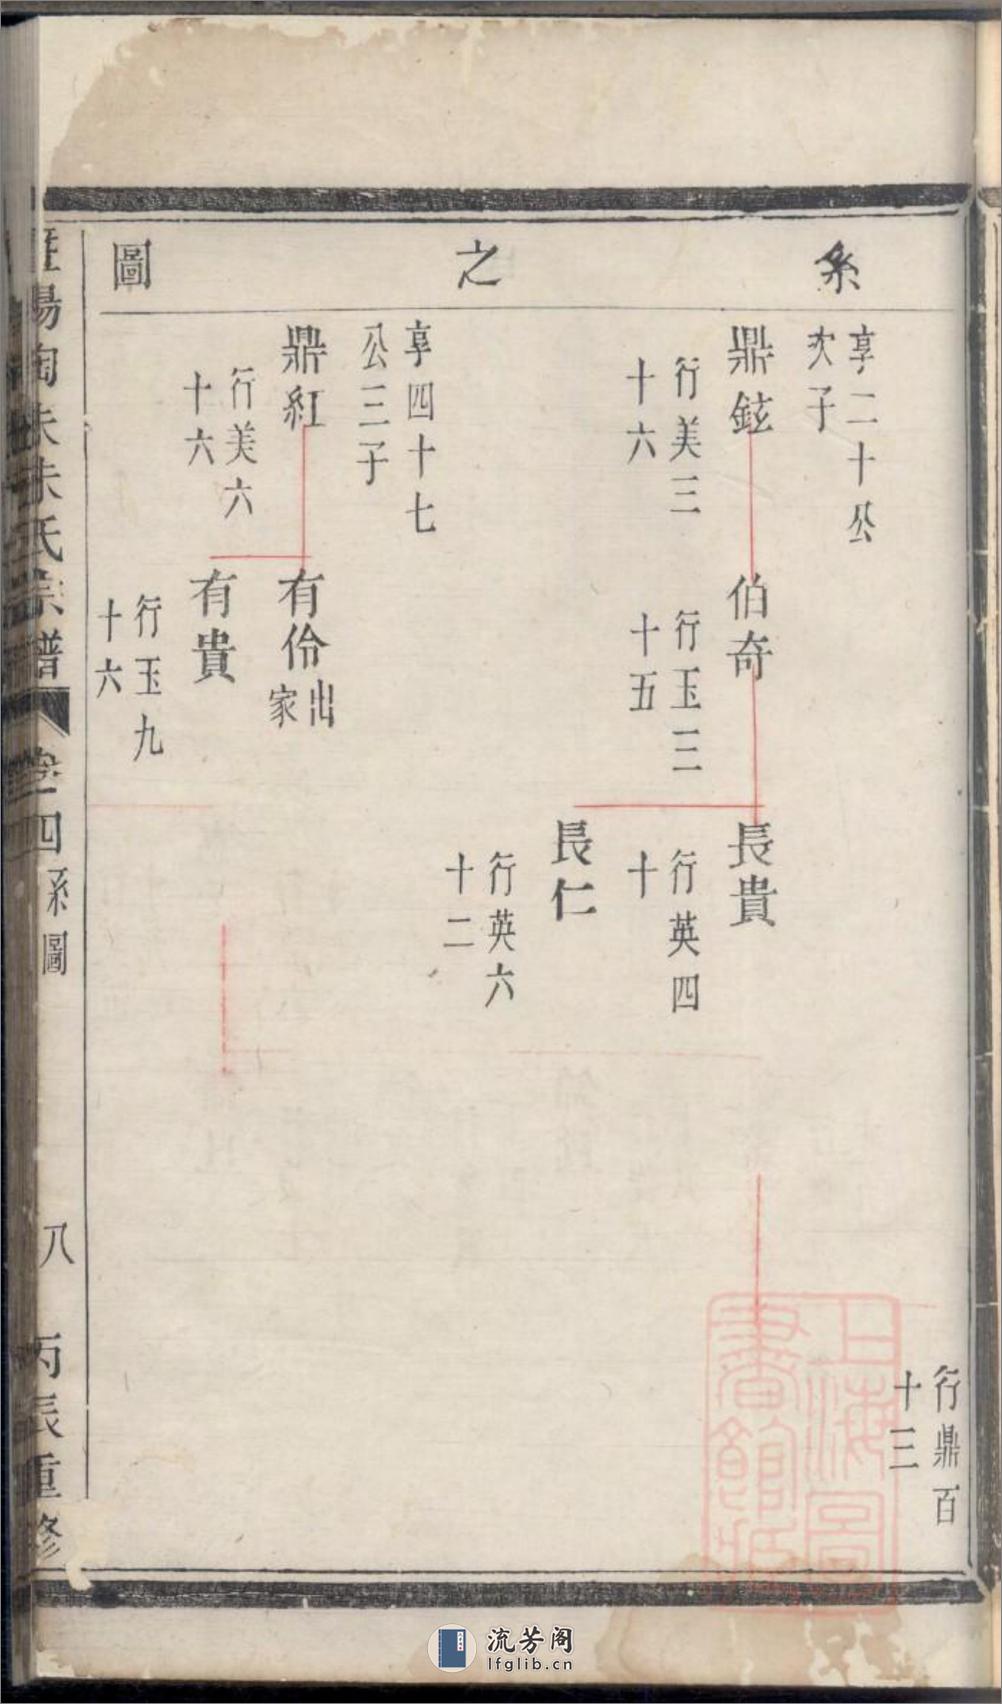 系之圖
享二十公
次子
鼎鉉
行美三
十六
伯奇
行玉三
十五
長貴
行英四
十
長仁
行英六
十二
行鼎百
十三
享四十七
公三子
鼎紅
行美六
十六
有伶
出
家
有貴
行玉九
十六
暨陽陶朱朱氏宗譜
卷四
系圖
八
丙辰重修
上海圖
書館藏
流芳阁
lfglib.cn